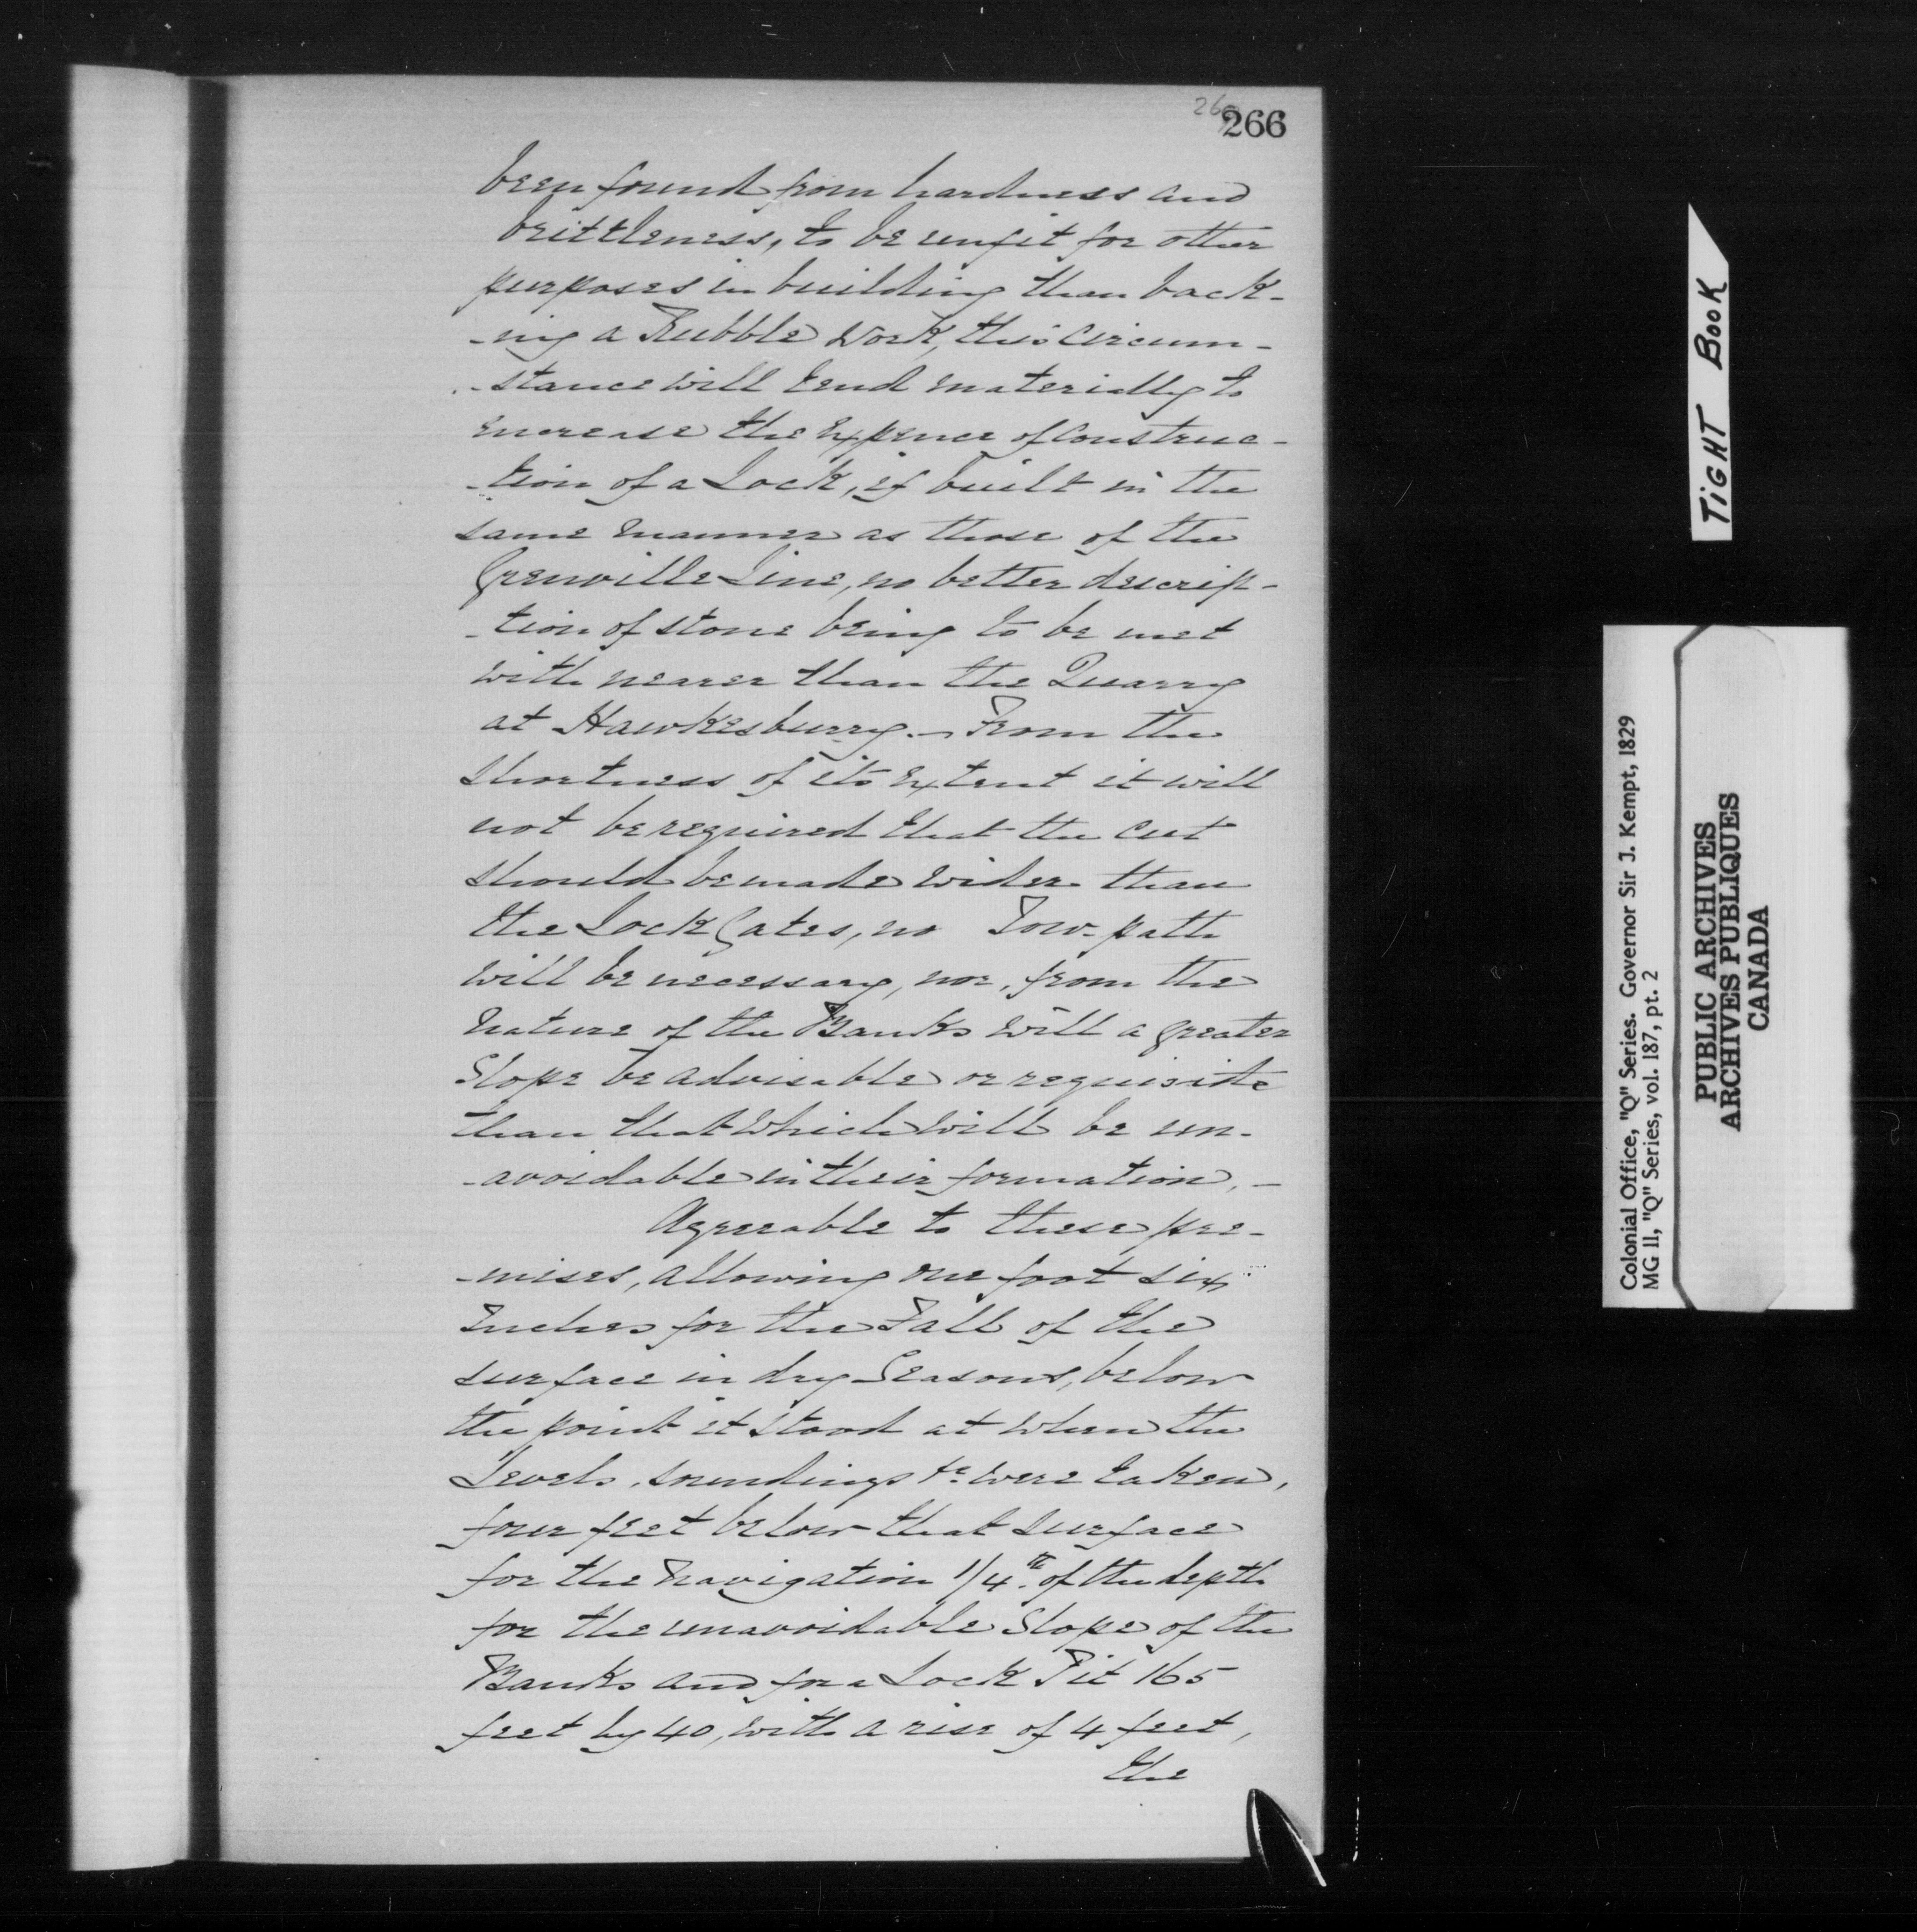 266
been found from hardness and
brittleness, to be unfit for other
purposes in building than back-
-ing a Rubble Work, this Circum-
-stance will tend materially to
encrease the Expence of Construc-
-tion of a Lock, if built in the
same manner as those of the
Grenville Line, no better descrip-
-tion of stone being to be met
with nearer than the Quarry
at Hawkesburry. - From the
shortness of its Extent it will
not be required that the Cut
should be made wider than
the Lock Gates, no Tow-path
will be necessary, nor, from the
Nature of the Banks will a greater
Slope be advisable or requisite
than that which will be un-
-avoidable in their formation, -
Agreeable to these pre-
-mises, allowing one foot six
Inches for the Fall of the
surface in dry Seasons, below
the point it stood at when the
Levels, soundings &c were taken,
four feet below that surface
for the Navigation 1/4th. of the depth
for the unavoidable Slope of the
Banks and for a Lock Pit 165
feet by 40, with a rise of 4 feet,
the
TIGHT BOOK
Colonial Office, "Q" Series. Governor Sir J. Kempt, 1829
MG 11, "Q" Series, vol. 187, pt. 2
PUBLIC ARCHIVES
ARCHIVES PUBLIQUES
CANADA